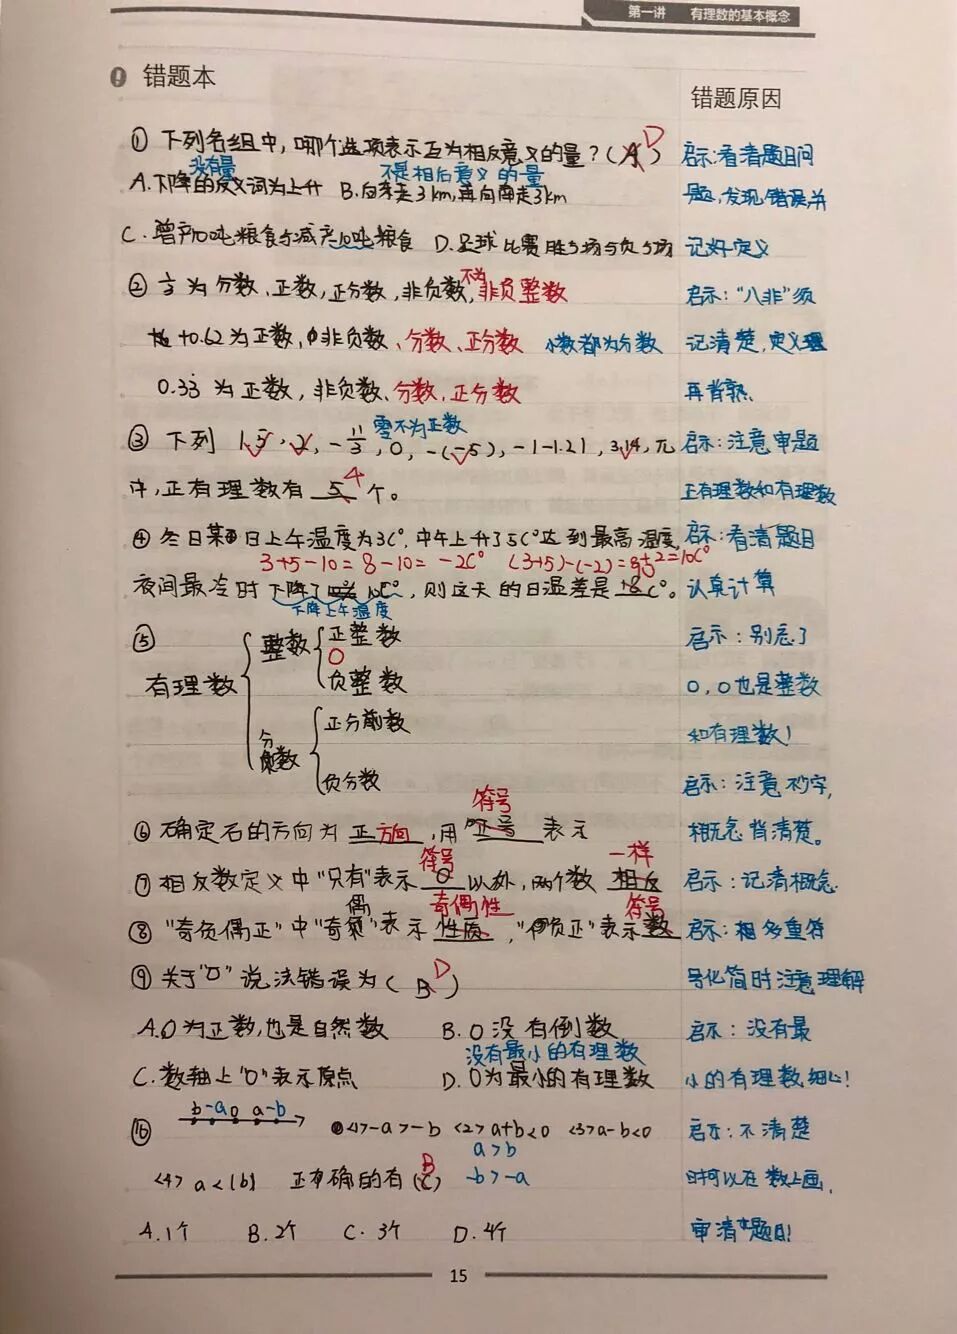 第一讲 有理数的基本概念
错题本
错题原因
① 下列各组中，哪个选项表示互为相反意义的量？(A) D
启示:看清题目问
没有量
不是相反意义的量
A.下降的反义词为上升 B.向东走3km,再向南走3km
题,发现错误并
C.增产10吨粮食与减产10吨粮食 D.足球比赛胜5场与负5场
记好定义
② 为分数、正数,正分数,非负数,不为非负整数
启示:"八非"须
+0.62为正数,非负数、分数、正分数 小数都为分数
记清楚,定义理
0.33 为正数,非负数,分数,正分数
再背熟.
零不为正数
③ 下列 1.5, 2, -11/3, 0, -(-5), -|-1.2|, 3.14, 元
启示:注意审题
中,正有理数有 5 4 个。
正有理数和有理数
④ 冬日某日上午温度为3C°,中午上升了5C°达到最高温度,
启示:看清题目
3+5-10=8-10=-2C° (3+5)-(-2)=8+2=10C°
夜间最冷时下降了10C°,则这天的日温差是 18 C°。
认真计算
下降上午温度
⑤
有理数
整数
正整数
0
负整数
分数
正分数
负分数
启示:别忘了
0,0也是整数
和有理数!
启示:注意 秒字,
符号
⑥ 确定右的方向为 正方向 ,用 正号 表示
概念背清楚。
符号 一样
⑦ 相反数定义中"只有"表示 0 以外,两个数 相反
启示:记清概念.
偶 奇偶性 符号
⑧ "奇负偶正"中"奇"表示 性质 ,"负正"表示 数
启示:相多重符
⑨ 关于"0"说法错误为( B ) D
号化简时注意理解
A.0为正数,也是自然数 B.0没有倒数
启示:没有最
没有最小的有理数
C.数轴上"0"表示原点 D.0为最小的有理数
小的有理数,细心!
⑩ b -a 0 a -b <1>-a>-b <2>a+b<0 <3>a-b<0
启示:不清楚
a>b
<4> a<|b| 正确的有(C) B -b>-a
时可以在数上画,
A.1个 B.2个 C.3个 D.4个
审清题目!
15